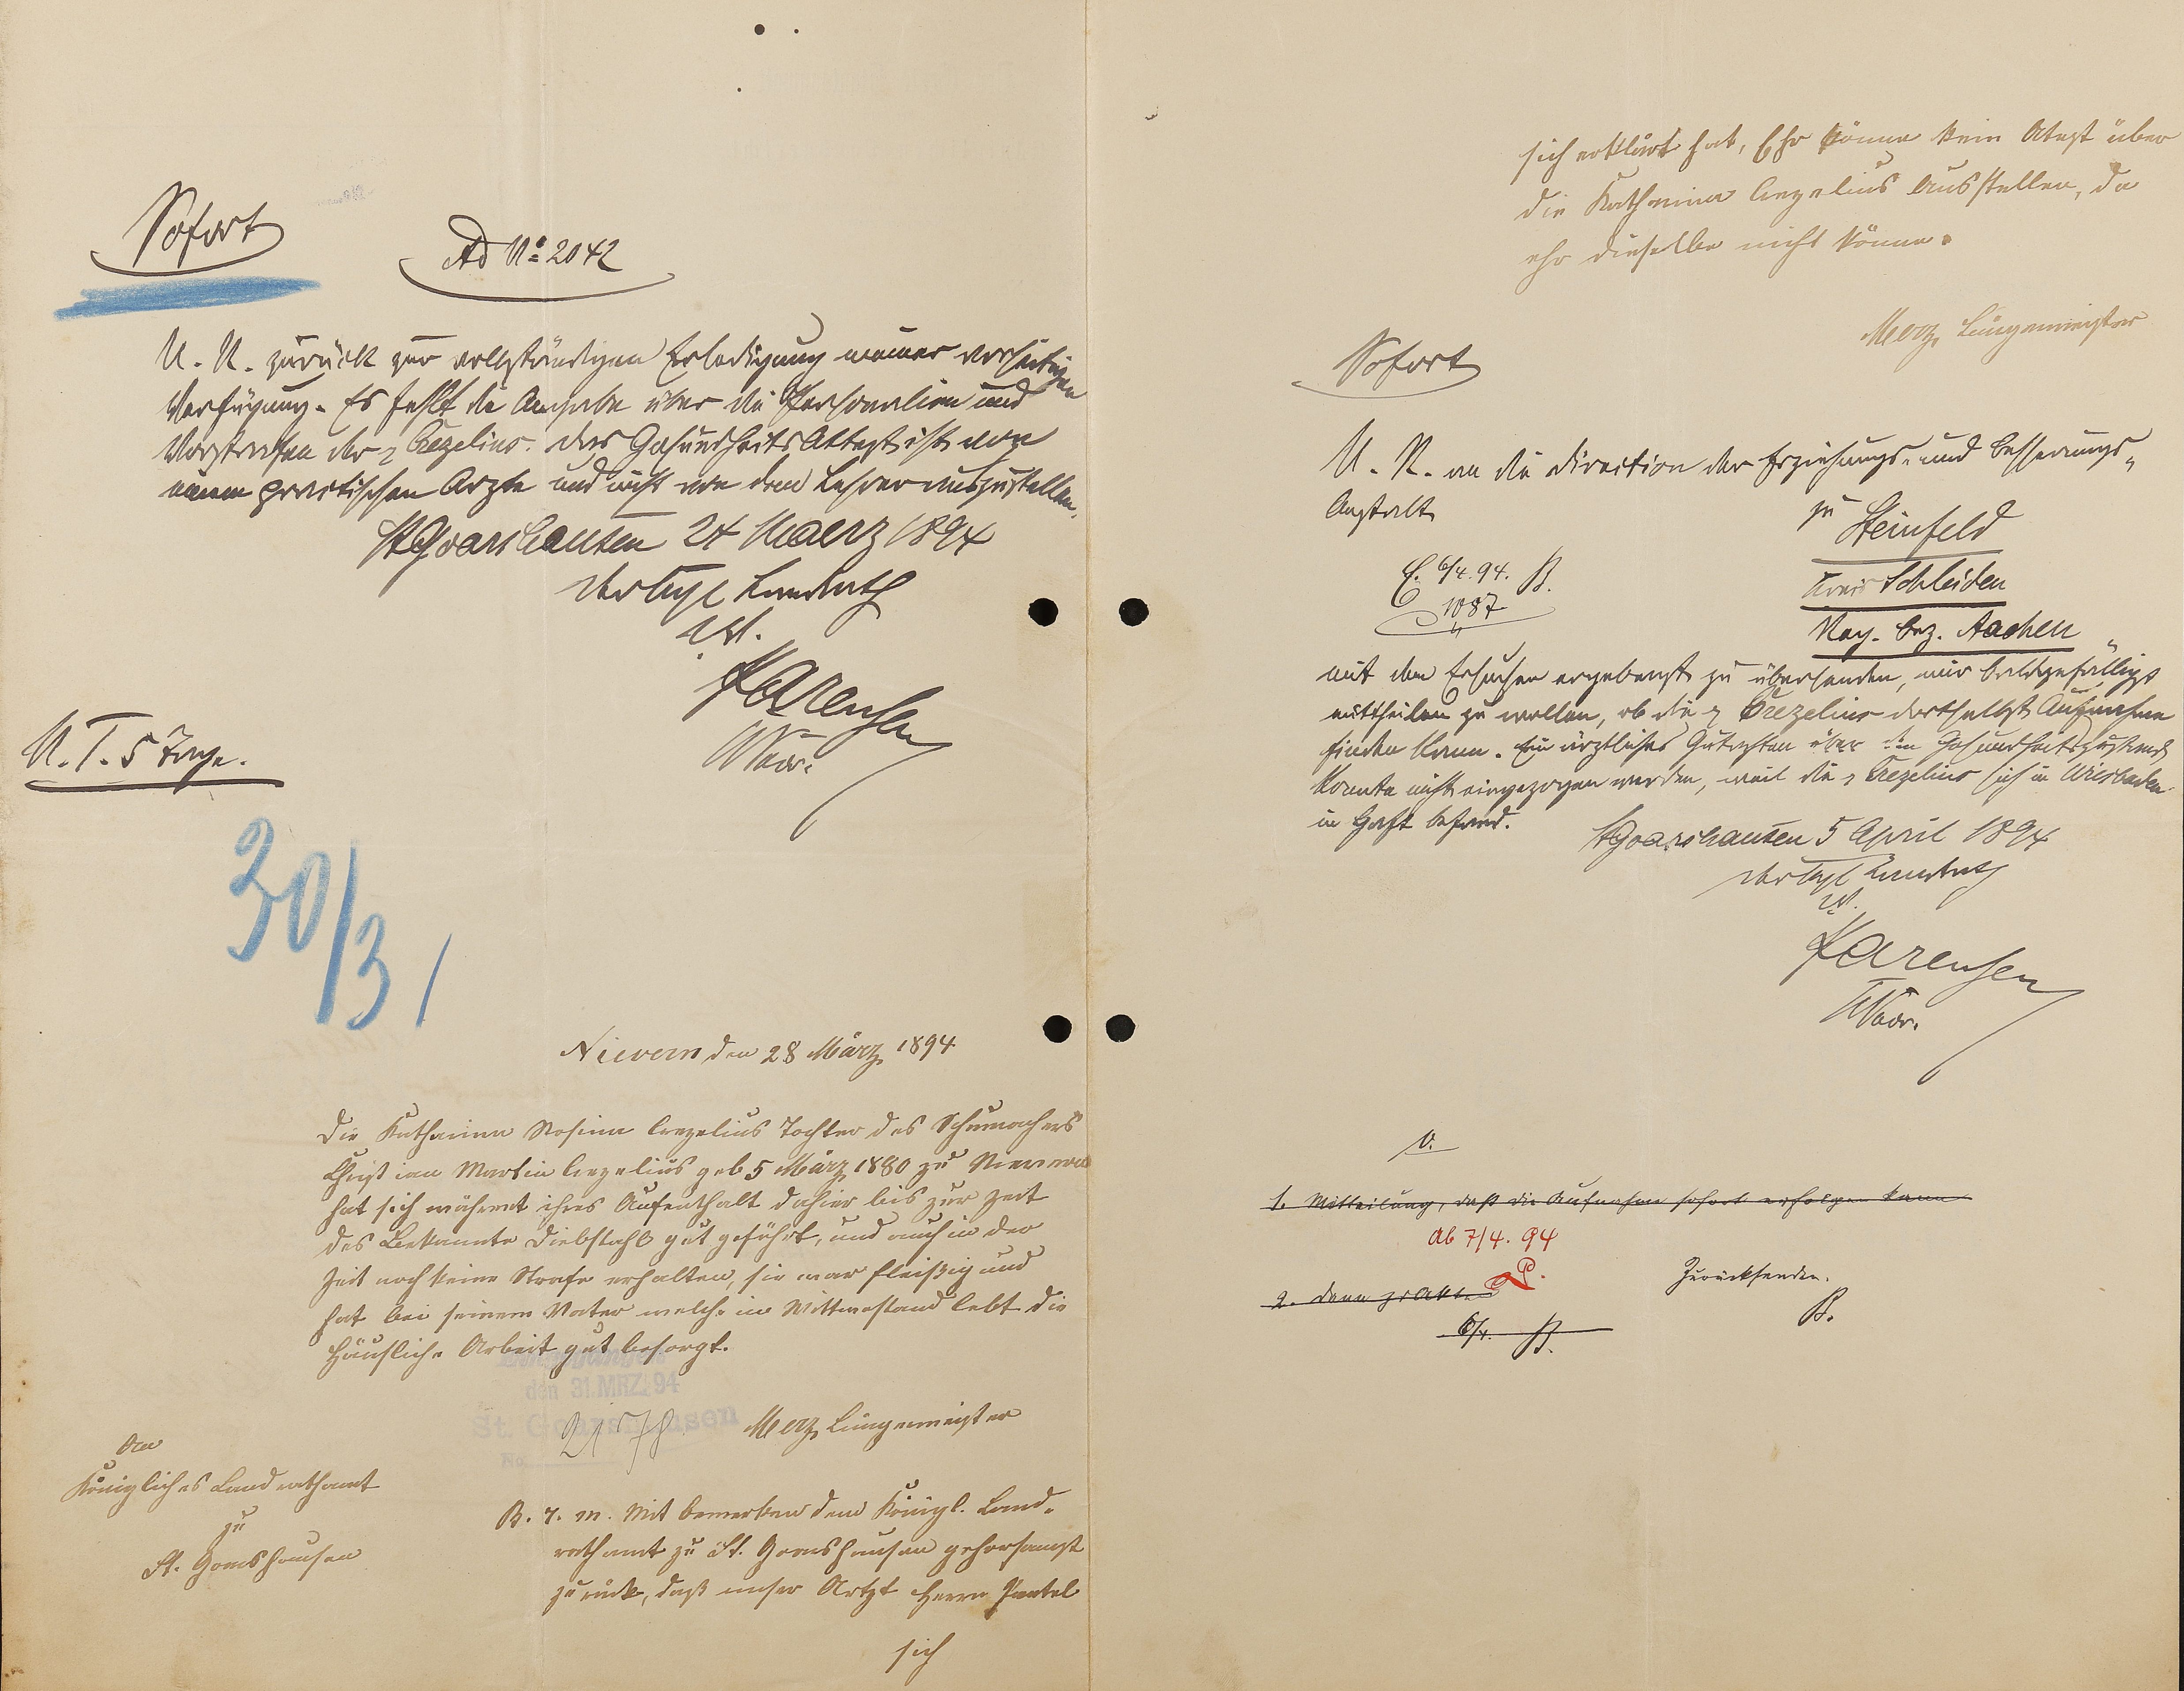 Sofort
Ad No 2042
U. R. zurück zur vollständigen Erledigung meiner vorseitigen
Verfügung. Es fehlt die Angabe über die Personalien und
Vorstrafen der p Crezelius. Das Gesundheits Attest ist von
einem practischen Arzte und nicht von dem Lehrer auszustellen.
St Goarshausen 24 Maerz 1894
Der Kgl Landrath
I.V.
U. T. 5 Tage.
30/3
Nievern den 28 März 1894
Die Katharina Rosina Crezelius Tochter des Schumachers
Christian Martin Crezelius geb 5 März 1880 zu Nievern
hat sich während ihres Aufenthalt dahier bis zur Zeit
des Bekannte Diebstahl gut geführt, und auch in der
Zeit noch keine Strafe erhalten, sie war fleißig und
hat bei seinem Vater welche im Wittwestand lebt die
Häusliche Arbeit gut besorgt.
den 31. MRZ. 94
St. Goarshausen
No 2178
Merz Bürgermeister
An
Königliches Landrathamt
zu
St. Goarshausen
B. r. m. Mit bemerken dem Königl. Land-
rathamt zu St. Goarshausen gehorsamst
zurück, daß unser Artzt Herrn
sich
sich erklärt hat, Ehr könne kein Atest über
die Katharina Crezelius Ausstellen, da
ehr dieselbe nicht könne.
Merz Bürgermeister
Sofort
U. R. an die Direction der Erziehungs- und Besserungs-
Anstalt
zu Steinfeld
Kreis Schleiden
Reg. Bez. Aachen
E. 6/4. 94. B.
1087
mit dem Ersuchen ergebenst zu übersenden, mir baldgefälligst
mittheilen zu wollen, ob die p Crezelius dortselbst Aufnahme
finden kann. Ein ärztliches Gutachten über den Gesundheitszustand
konnte nicht eingezogen werden, weil die p Crezelius sich in Wiesbaden
in Haft befand.
St Goarshausen 5 April 1894
Der Kgl Landrath
I.V.
V.
1. Mitteilung, daß die Aufnahme sofort erfolgen kann
Ab 7/4. 94
P.
2. dann z. d. Akten
Zurücksenden.
B.
6/4. B.